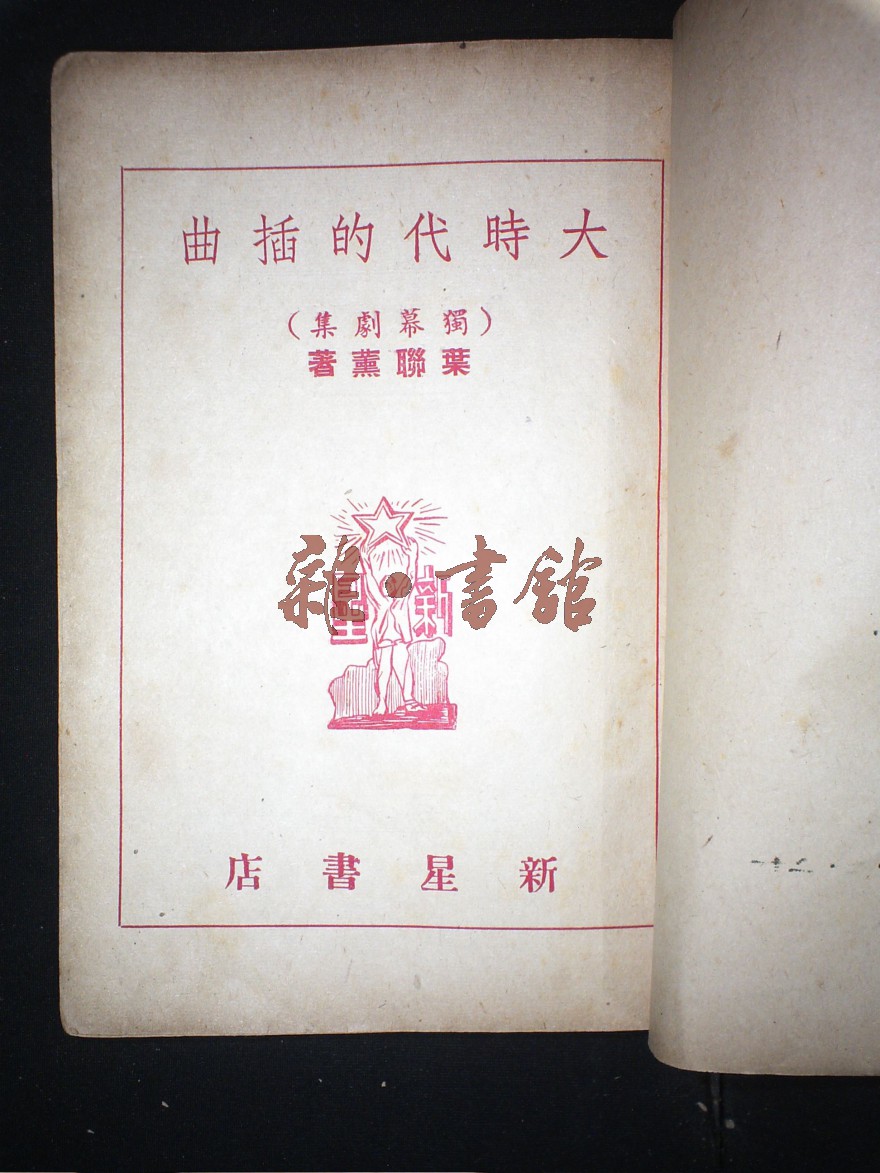 大時代的插曲
（獨幕劇集）
葉聯薰著
新星
雜•書館
新星書店